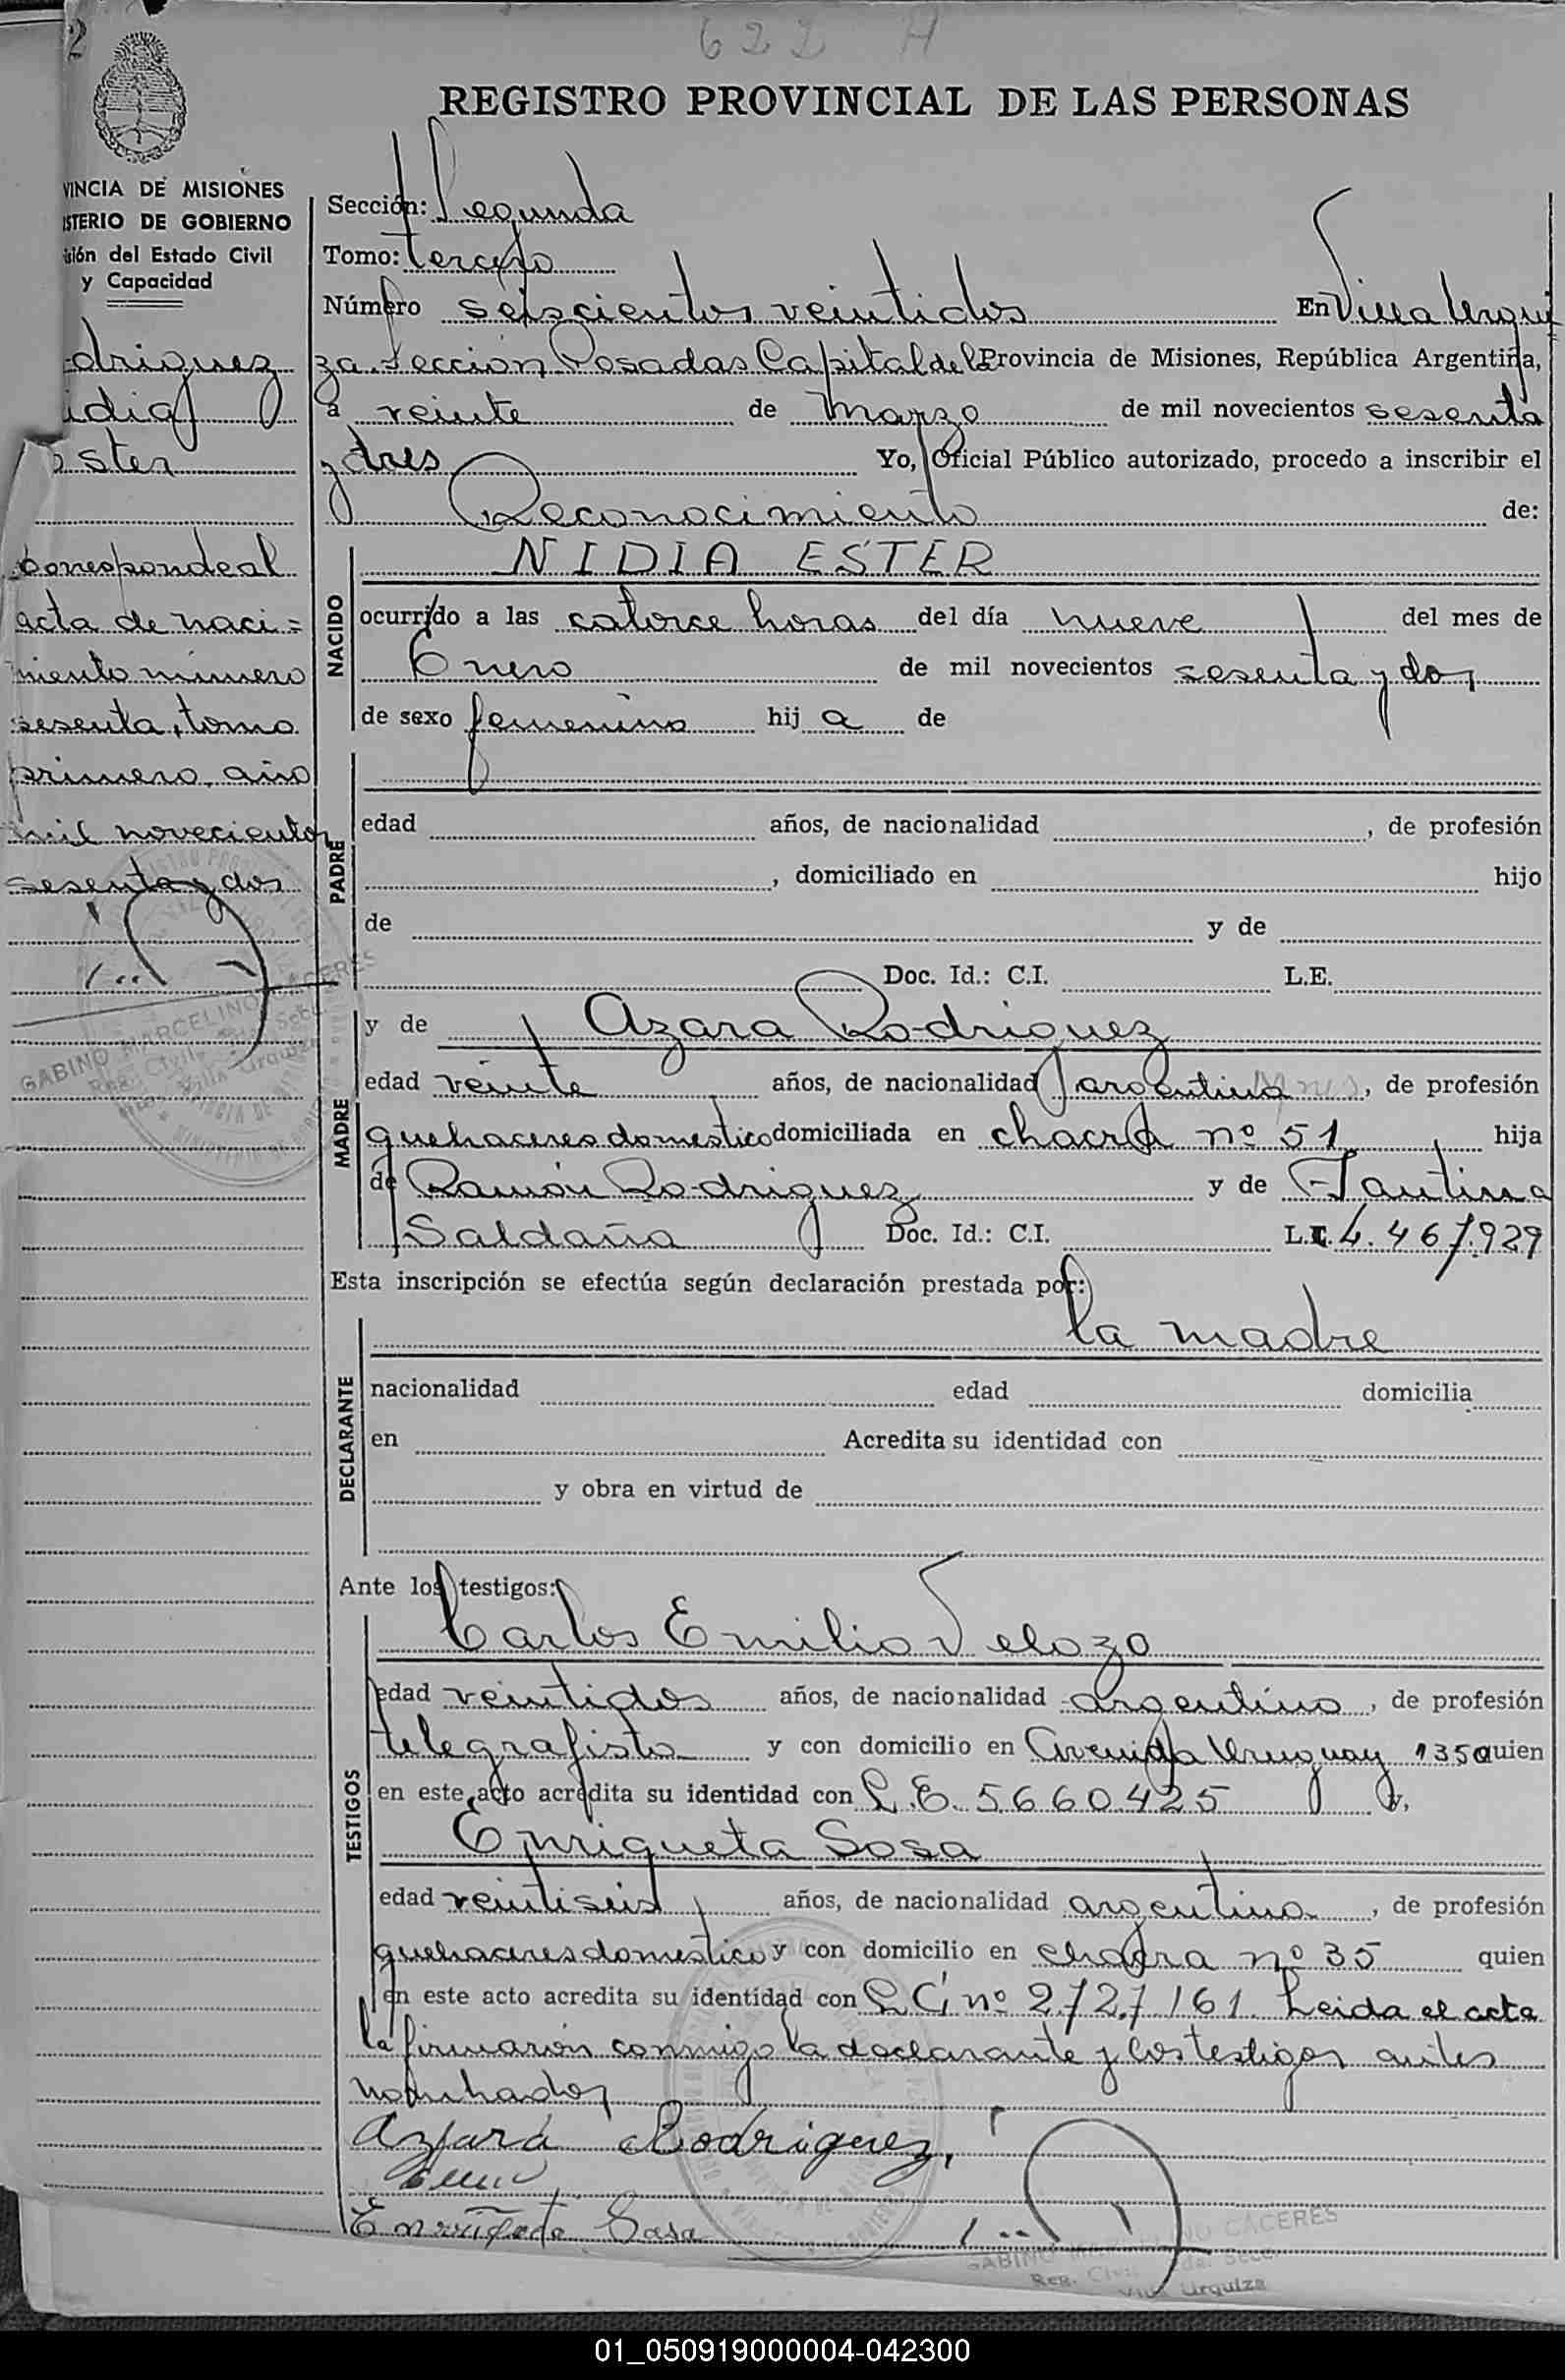 622 A
2
REGISTRO PROVINCIAL DE LAS PERSONAS
VINCIA DE MISIONES
ISTERIO DE GOBIERNO
isión del Estado Civil
y Capacidad
driguez
idia
ster
Corresponde al
acta de naci=
miento número
sesenta, tomo
primero, año
mil novecientos
sesenta y dos
GABINO MARCELINO CACERES
Villa Urquiza
Sección: Segunda
Tomo: tercero
Número seiscientos veintidos En Villa Urqui
za. Sección Posadas Capital de la Provincia de Misiones, República Argentina,
a veinte de Marzo de mil novecientos sesenta
y tres Yo, Oficial Público autorizado, procedo a inscribir el
Reconocimiento de:
NACIDO
NIDIA ESTER
ocurrido a las catorce horas del día nueve del mes de
Enero de mil novecientos sesenta y dos
de sexo femenino hij a de
PADRE
edad años, de nacionalidad , de profesión
, domiciliado en hijo
de y de
Doc. Id.: C.I. L.E.
MADRE
y de Azara Rodriguez
edad veinte años, de nacionalidad argentina, de profesión
quehaceres domestico domiciliada en chacra nº 51 hija
de Ramón Rodriguez y de Fautina
Saldaña Doc. Id.: C.I. L.C. 4.467.929
Esta inscripción se efectúa según declaración prestada por:
DECLARANTE
la madre
nacionalidad edad domicilia
en Acredita su identidad con
y obra en virtud de
Ante los testigos:
TESTIGOS
Carlos Emilio Velozo
edad veintidos años, de nacionalidad argentino, de profesión
telegrafista y con domicilio en Avenida Uruguay 135 quien
en este acto acredita su identidad con L.E. 5660425 y,
Enriqueta Sosa
edad veintiseis años, de nacionalidad argentina, de profesión
quehaceres domestico y con domicilio en chacra nº 35 quien
en este acto acredita su identidad con L C. nº 2.727.161. Leida el acta
la firmarón conmigo la declarante y los testigos antes
nombrados
Azara Rodriguez,
Enriqueta Sosa
GABINO MARCELINO CACERES
Villa Urquiza
01_050919000004-042300